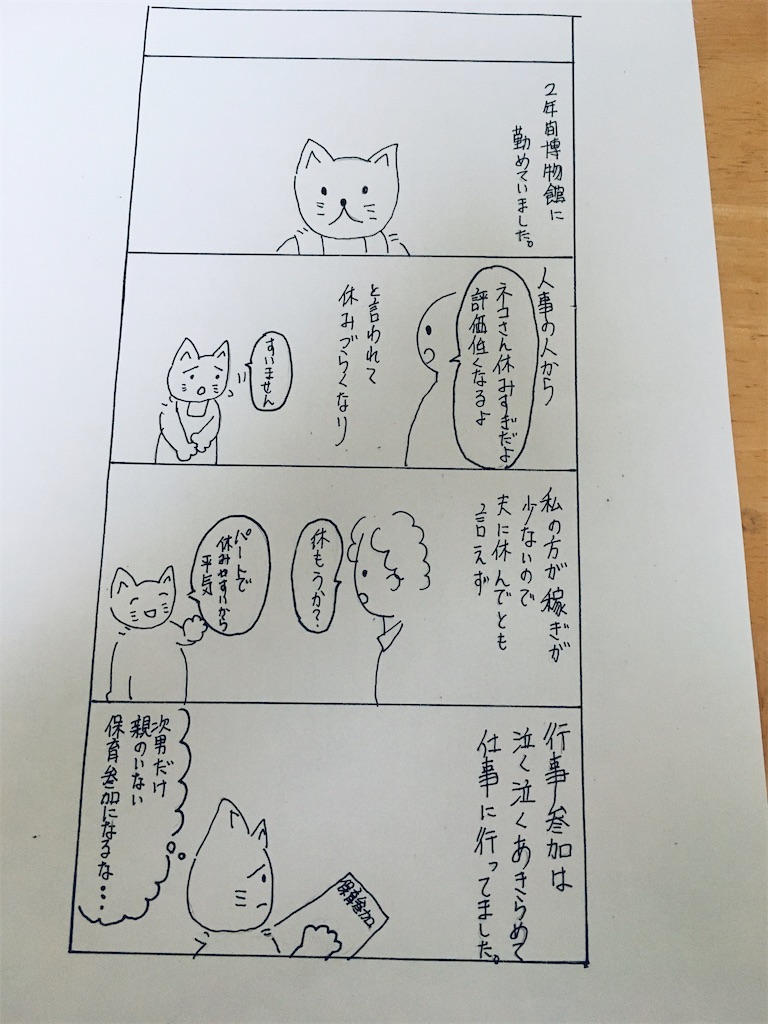 2年間博物館に
勤めていました。
人事の人から
ネコさん休みすぎだよ
評価低くなるよ
と言われて
休みづらくなり
すいません
私の方が稼ぎが
少ないので
夫に休んでとも
言えず
休もうか?
パートで
休みやすいから
平気
行事参加は
泣く泣くあきらめて
仕事に行ってました。
保育参加
次男だけ
親のいない
保育参加になるな…